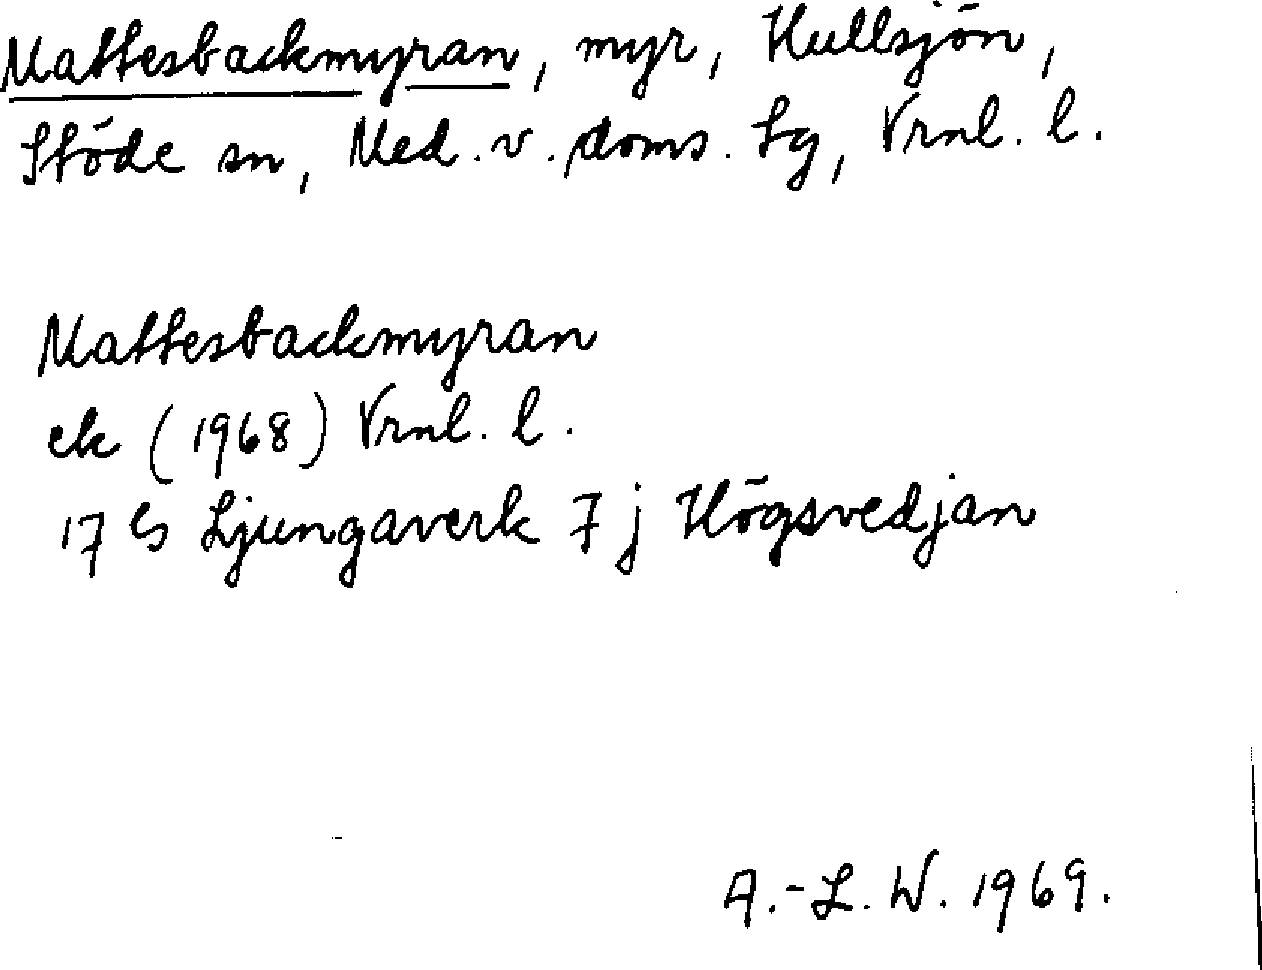 Mattesbackmyran, myr, Hullsjön,
Stöde sn, Med. v. doms. tg, Vrnl. l.
Mattesbackmyran
ek (1968) Vrnl. l.
17 G Ljungaverk 7 j Högsvedjan
A.-L. W. 1969.